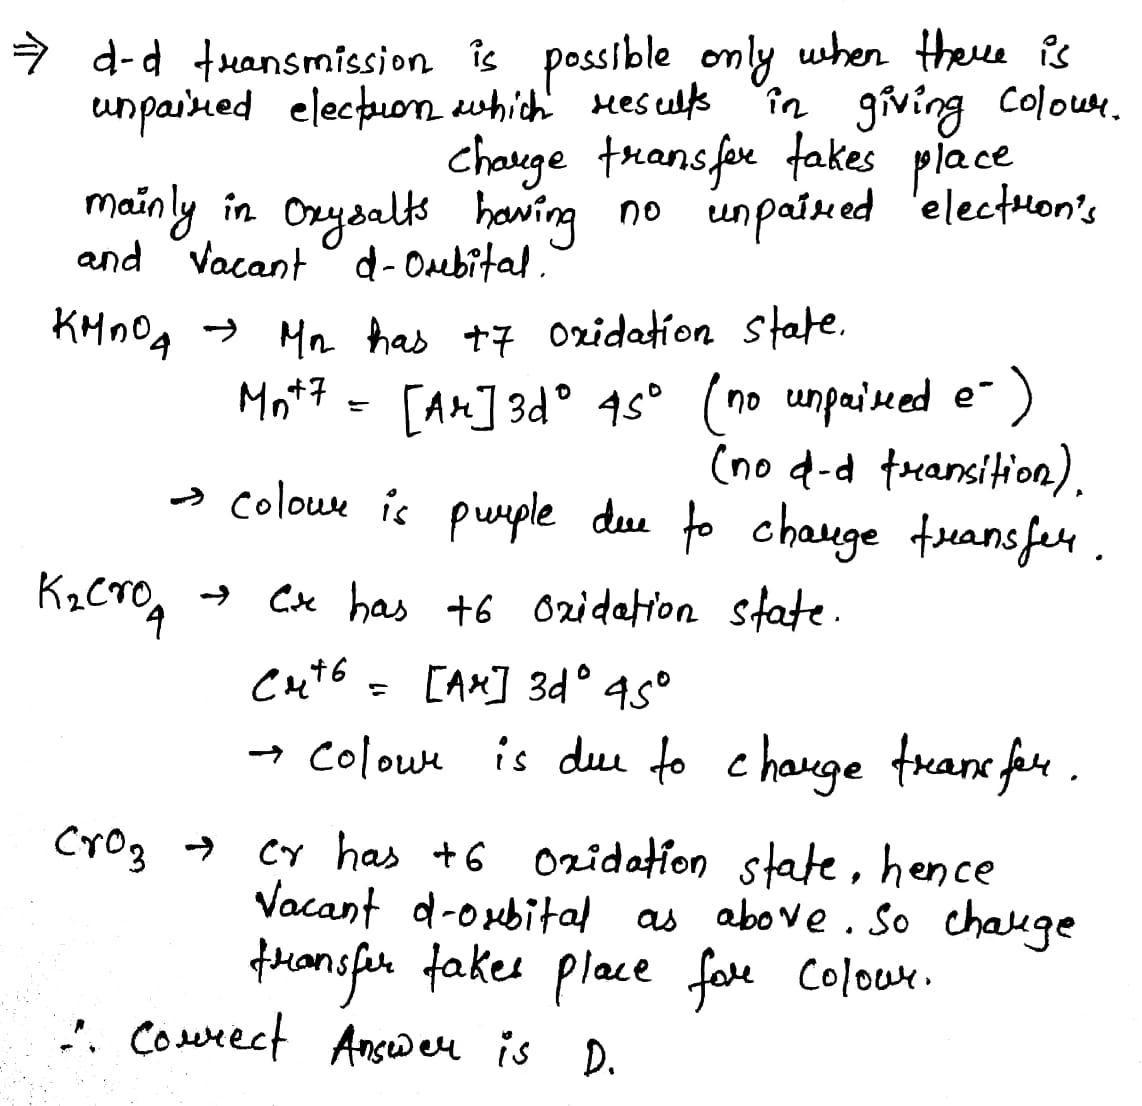 ⇒ d-d transmission is possible only when there is
unpaired electron which results in giving colour.
Charge transfer takes place
mainly in Oxysalts having no unpaired electron's
and Vacant d-Orbital.
KMnO₄ → Mn has +7 oxidation state.
Mn⁺⁷ = [Ar] 3d⁰ 4s⁰ (no unpaired e⁻)
(no d-d transition).
→ colour is purple due to charge transfer.
K₂CrO₄ → Cr has +6 oxidation state.
Cr⁺⁶ = [Ar] 3d⁰ 4s⁰
→ Colour is due to charge transfer.
CrO₃ → Cr has +6 oxidation state, hence
Vacant d-orbital as above. So charge
transfer takes place for colour.
∴ Correct Answer is D.